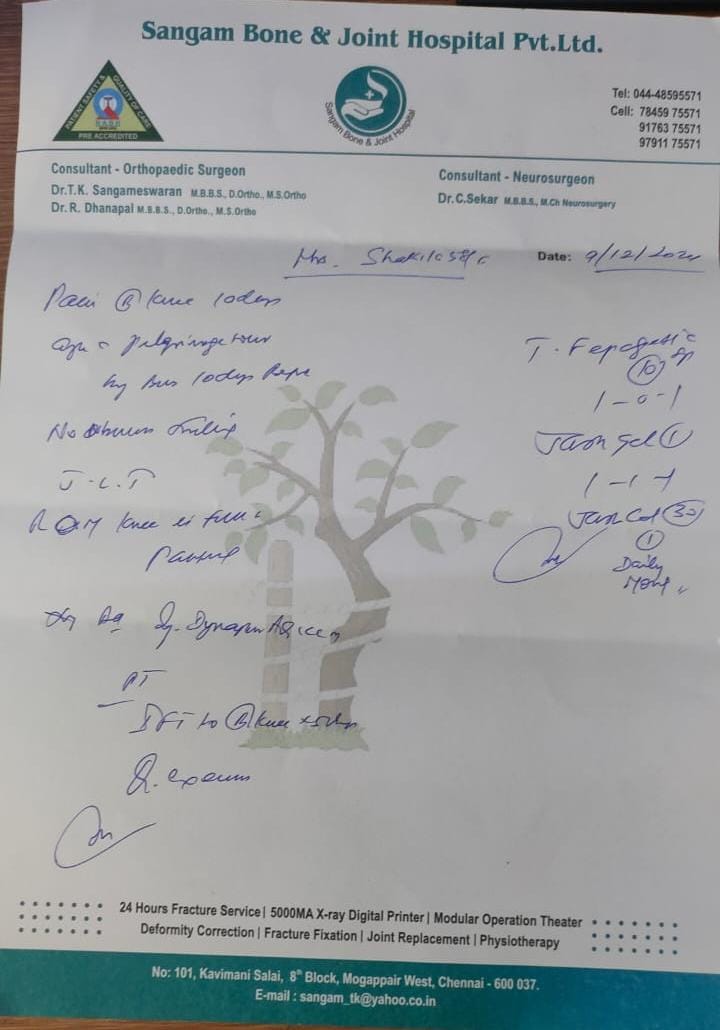 Sangam Bone & Joint Hospital Pvt.Ltd.
PATIENT SAFETY & QUALITY OF CARE
PRE ACCREDITED
Sangam Bone & Joint Hospital
Tel: 044-48595571
Cell: 78459 75571
91763 75571
97911 75571
Consultant - Orthopaedic Surgeon
Dr.T.K. Sangameswaran M.B.B.S., D.Ortho., M.S.Ortho
Dr.R. Dhanapal M.B.B.S., D.Ortho., M.S.Ortho
Consultant - Neurosurgeon
Dr.C.Sekar M.B.B.S., M.Ch Neurosurgery
Mrs. Shakila
Date: 9/12/2024
Pain Ⓑ knee 10days
Pilgrimage tour
by Bus 10days
No
J.L.T
ROM knee is full
Painful
PT
IFT to Ⓑ knee
Q. exercise
T.
⑩
1-0-1
gel ①
1-1-1
㉚
①
Daily
24 Hours Fracture Service | 5000MA X-ray Digital Printer | Modular Operation Theater
Deformity Correction | Fracture Fixation | Joint Replacement | Physiotherapy
No: 101, Kavimani Salai, 8th Block, Mogappair West, Chennai - 600 037.
E-mail : sangam_tk@yahoo.co.in